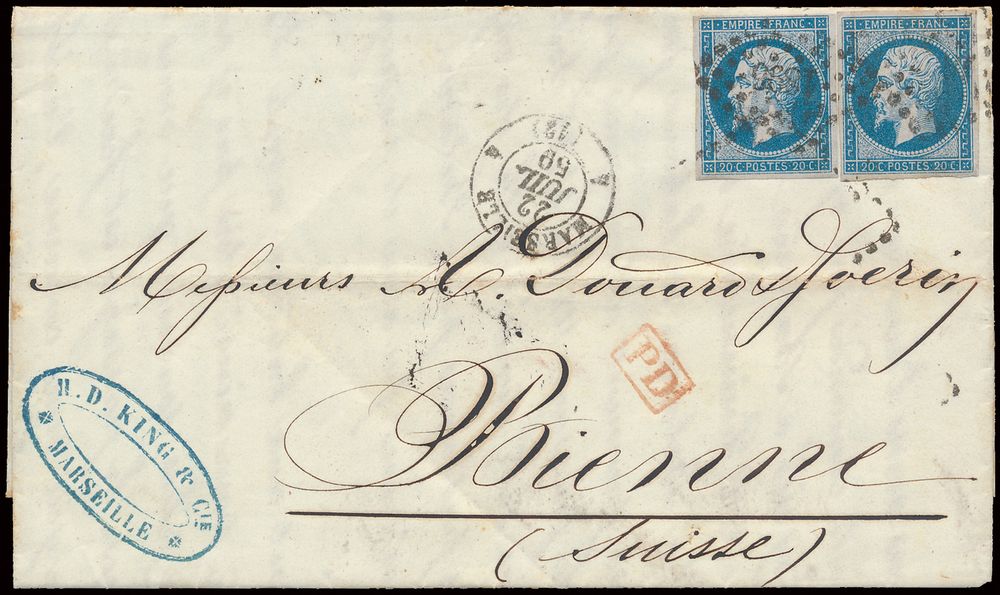 EMPIRE FRANC
20 C · POSTES · 20 C
EMPIRE FRANC
20 C · POSTES · 20 C
MARSEILLE (12)
22
JUIL.
59
Messieurs A. Douard & Joerin
PD
Bienne
(Suisse)
H. D. KING & CIE
MARSEILLE